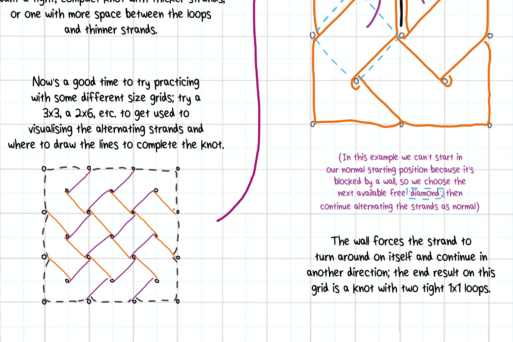 or one with more space between the loops
and thinner strands.
Now's a good time to try practicing
with some different size grids; try a
3x3, a 2x6, etc. to get used to
visualising the alternating strands and
where to draw the lines to complete the knot.
(In this example we can't start in
our normal starting position because it's
blocked by a wall, so we choose the
next available free diamond, then
continue alternating the strands as normal)
The wall forces the strand to
turn around on itself and continue in
another direction; the end result on this
grid is a knot with two tight 1x1 loops.